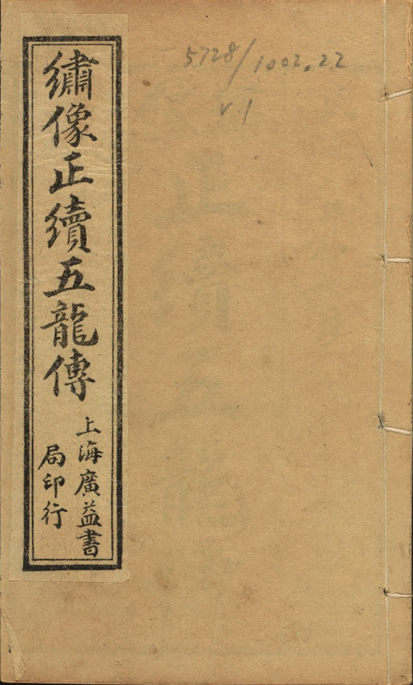 繡像正續五龍傳
上海廣益書
局印行
5728/1002.22
v.1